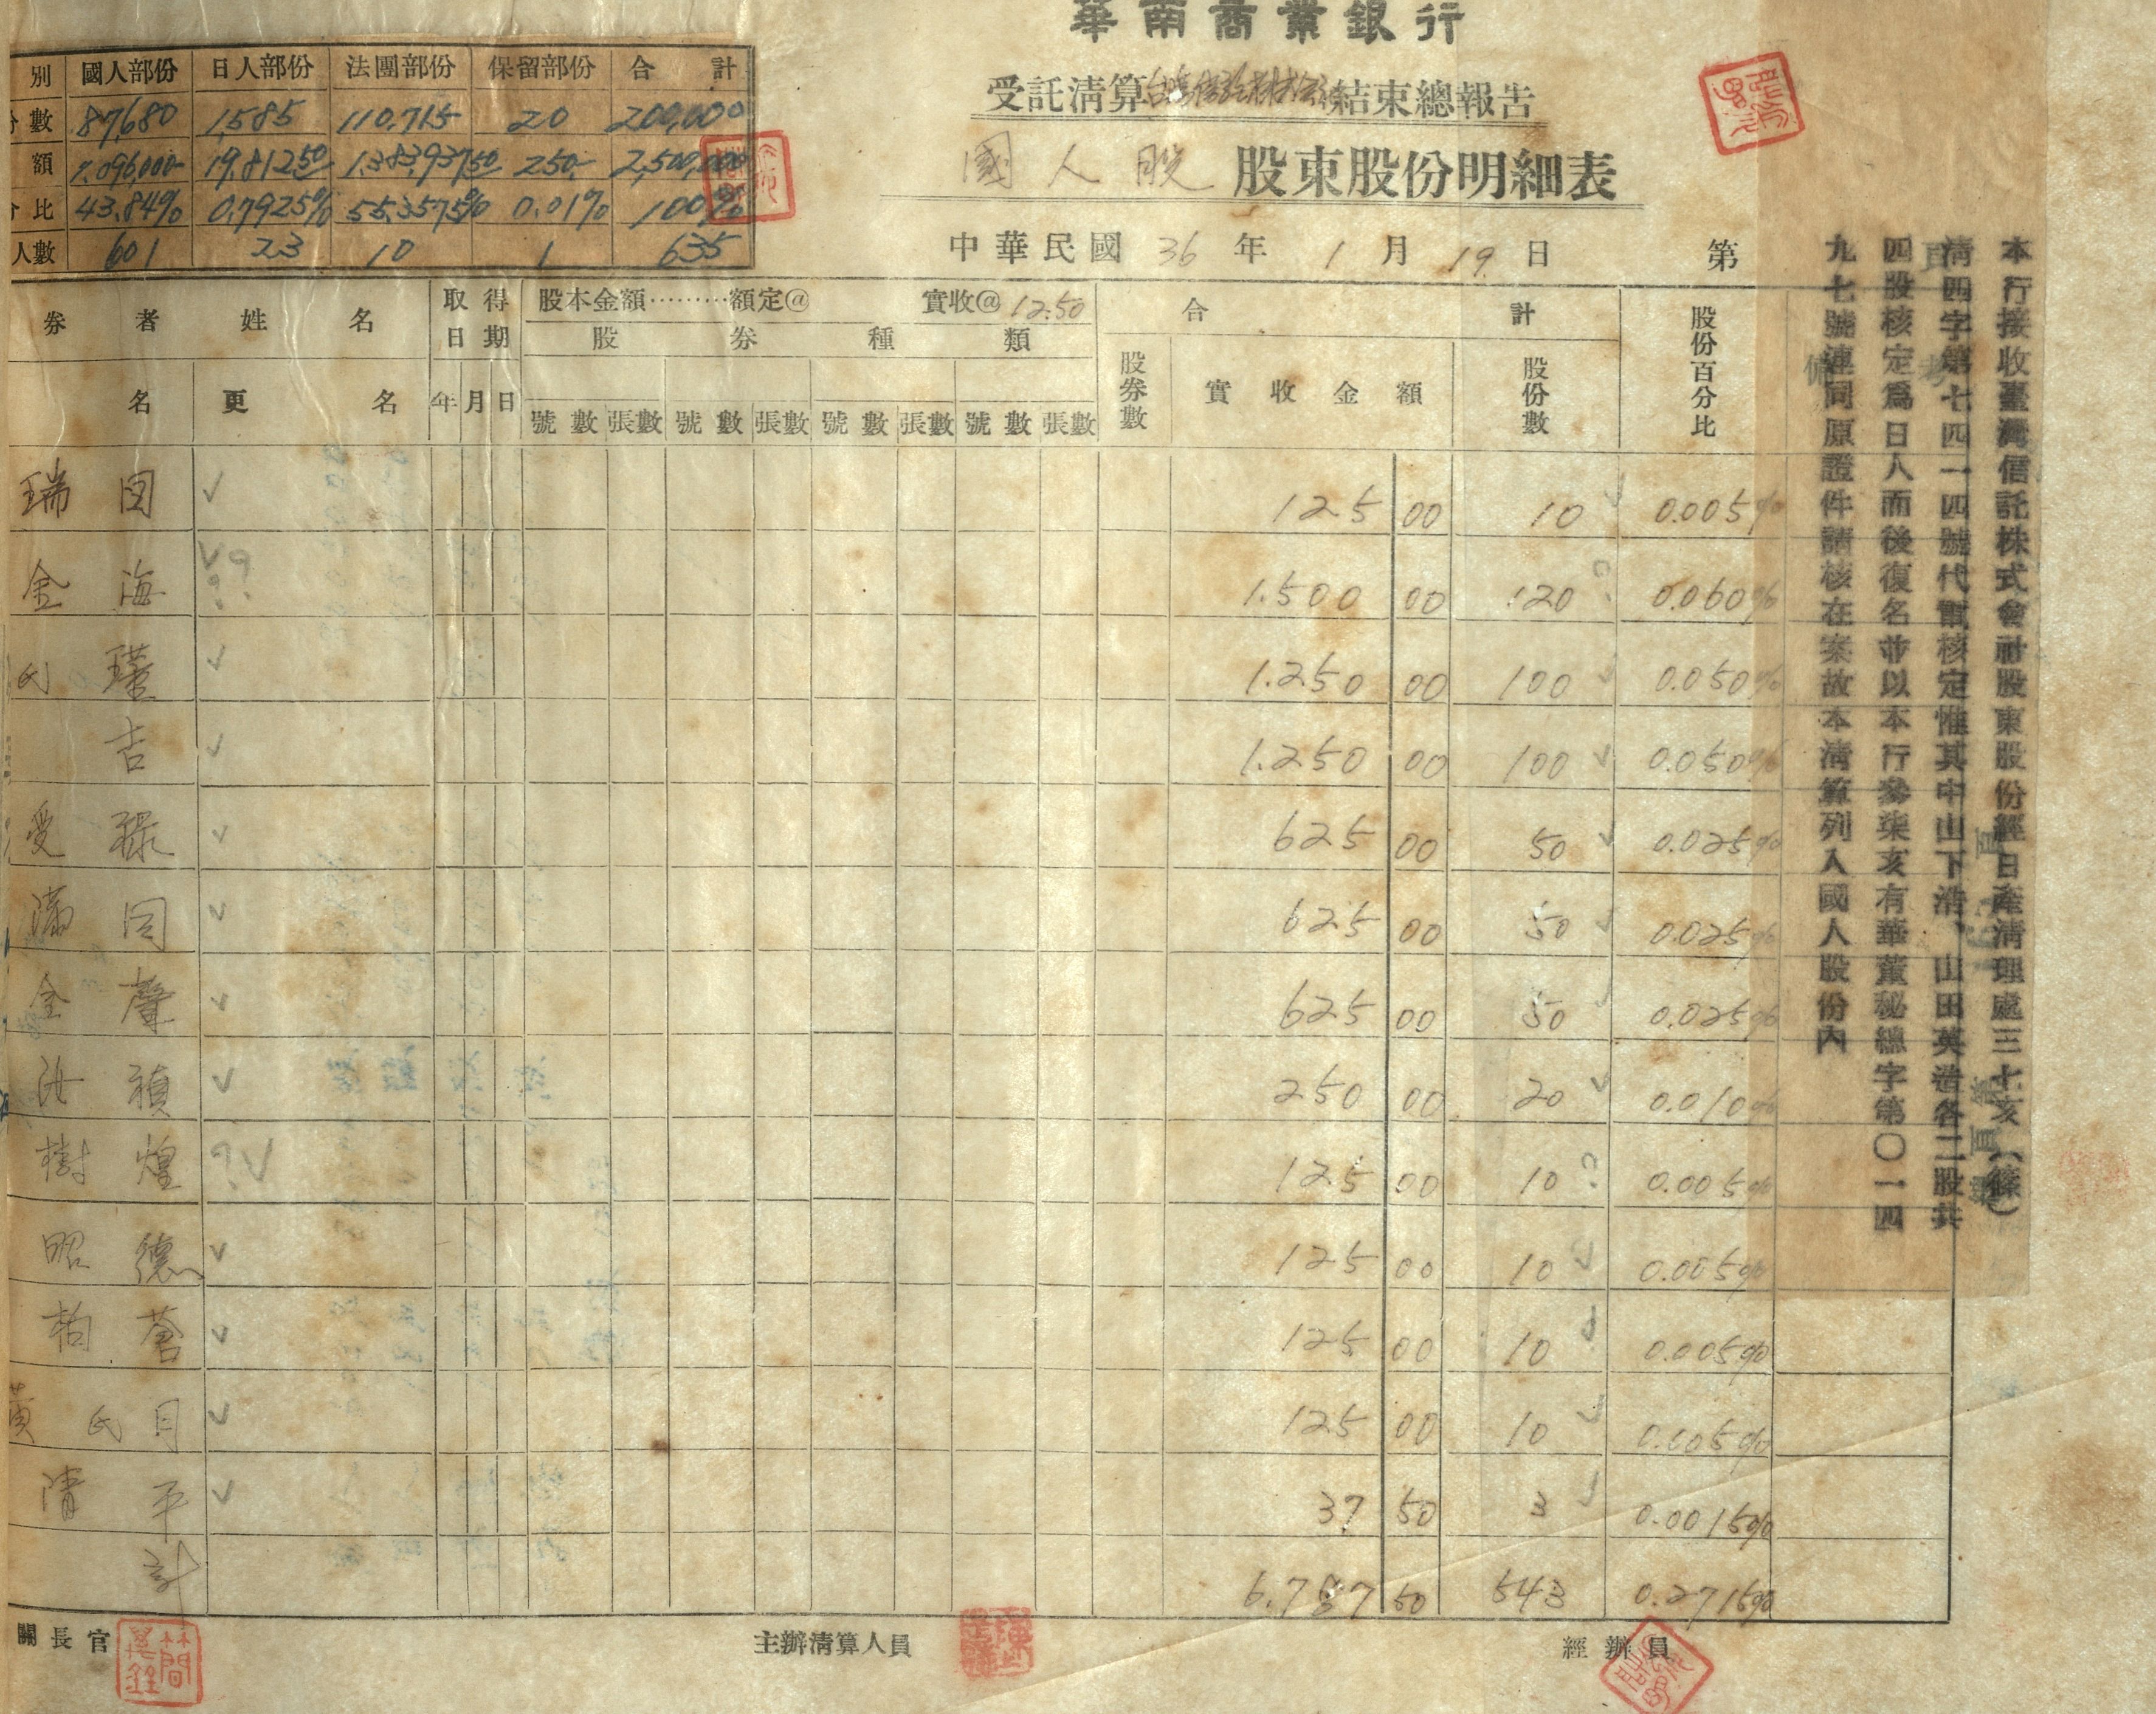 華南商業銀行
受託清算台灣信託株式会社結束總報告
國人股 股東股份明細表
中華民國 36 年 1 月 19 日 第 頁
別 國人部份 日人部份 法團部份 保留部份 合計
數 87,680 1,585 110,715 20 200,000
額 1,096,000- 19,812.50 1,383,937.50 250.- 2,500,000
比 43.84% 0.7925% 55.3575% 0.01% 100%
人數 601 23 10 1 635
券者姓名 取得日期 股本金額………額定@ 實收@ 12.50 合計 股份百分比 備考
股券種類
名 更名 年 月 日 號數 張數 號數 張數 號數 張數 號數 張數 股券數 實收金額 股份數
瑞 ✓ 125 00 10 ✓ 0.005%
金海 ✓?? 1.500 00 120 ? 0.060%
氏瑾 ✓ 1.250 00 100 ✓ 0.050%
吉 ✓ 1.250 00 100 ✓ 0.050%
受祿 ✓ 625 00 50 ✓ 0.025%
✓ 625 00 50 ✓ 0.025%
金聲 ✓ 625 00 50 ✓ 0.025%
禎 ✓ 250 00 20 ✓ 0.010%
樹煌 ?✓ 125 00 10 ? 0.005%
昭德 ✓ 125 00 10 ✓ 0.005%
柏蒼 ✓ 125 00 10 ✓ 0.005%
黃氏月 ✓ 125 00 10 ✓ 0.005%
清平 ✓ 37 50 3 ✓ 0.0015%
計 6.787 50 543 0.2715%
關長官 主辦清算人員 經辦員
本行接收臺灣信託株式會社股東股份經日產清理處三七亥（篠）
清四字第七四一四號代電核定惟其中山下浩、山田英浩各二股共
四股核定為日人而後復名並以本行參柒亥有華董秘總字第〇一四
九七號連同原證件請核在案故本清算列入國人股份內